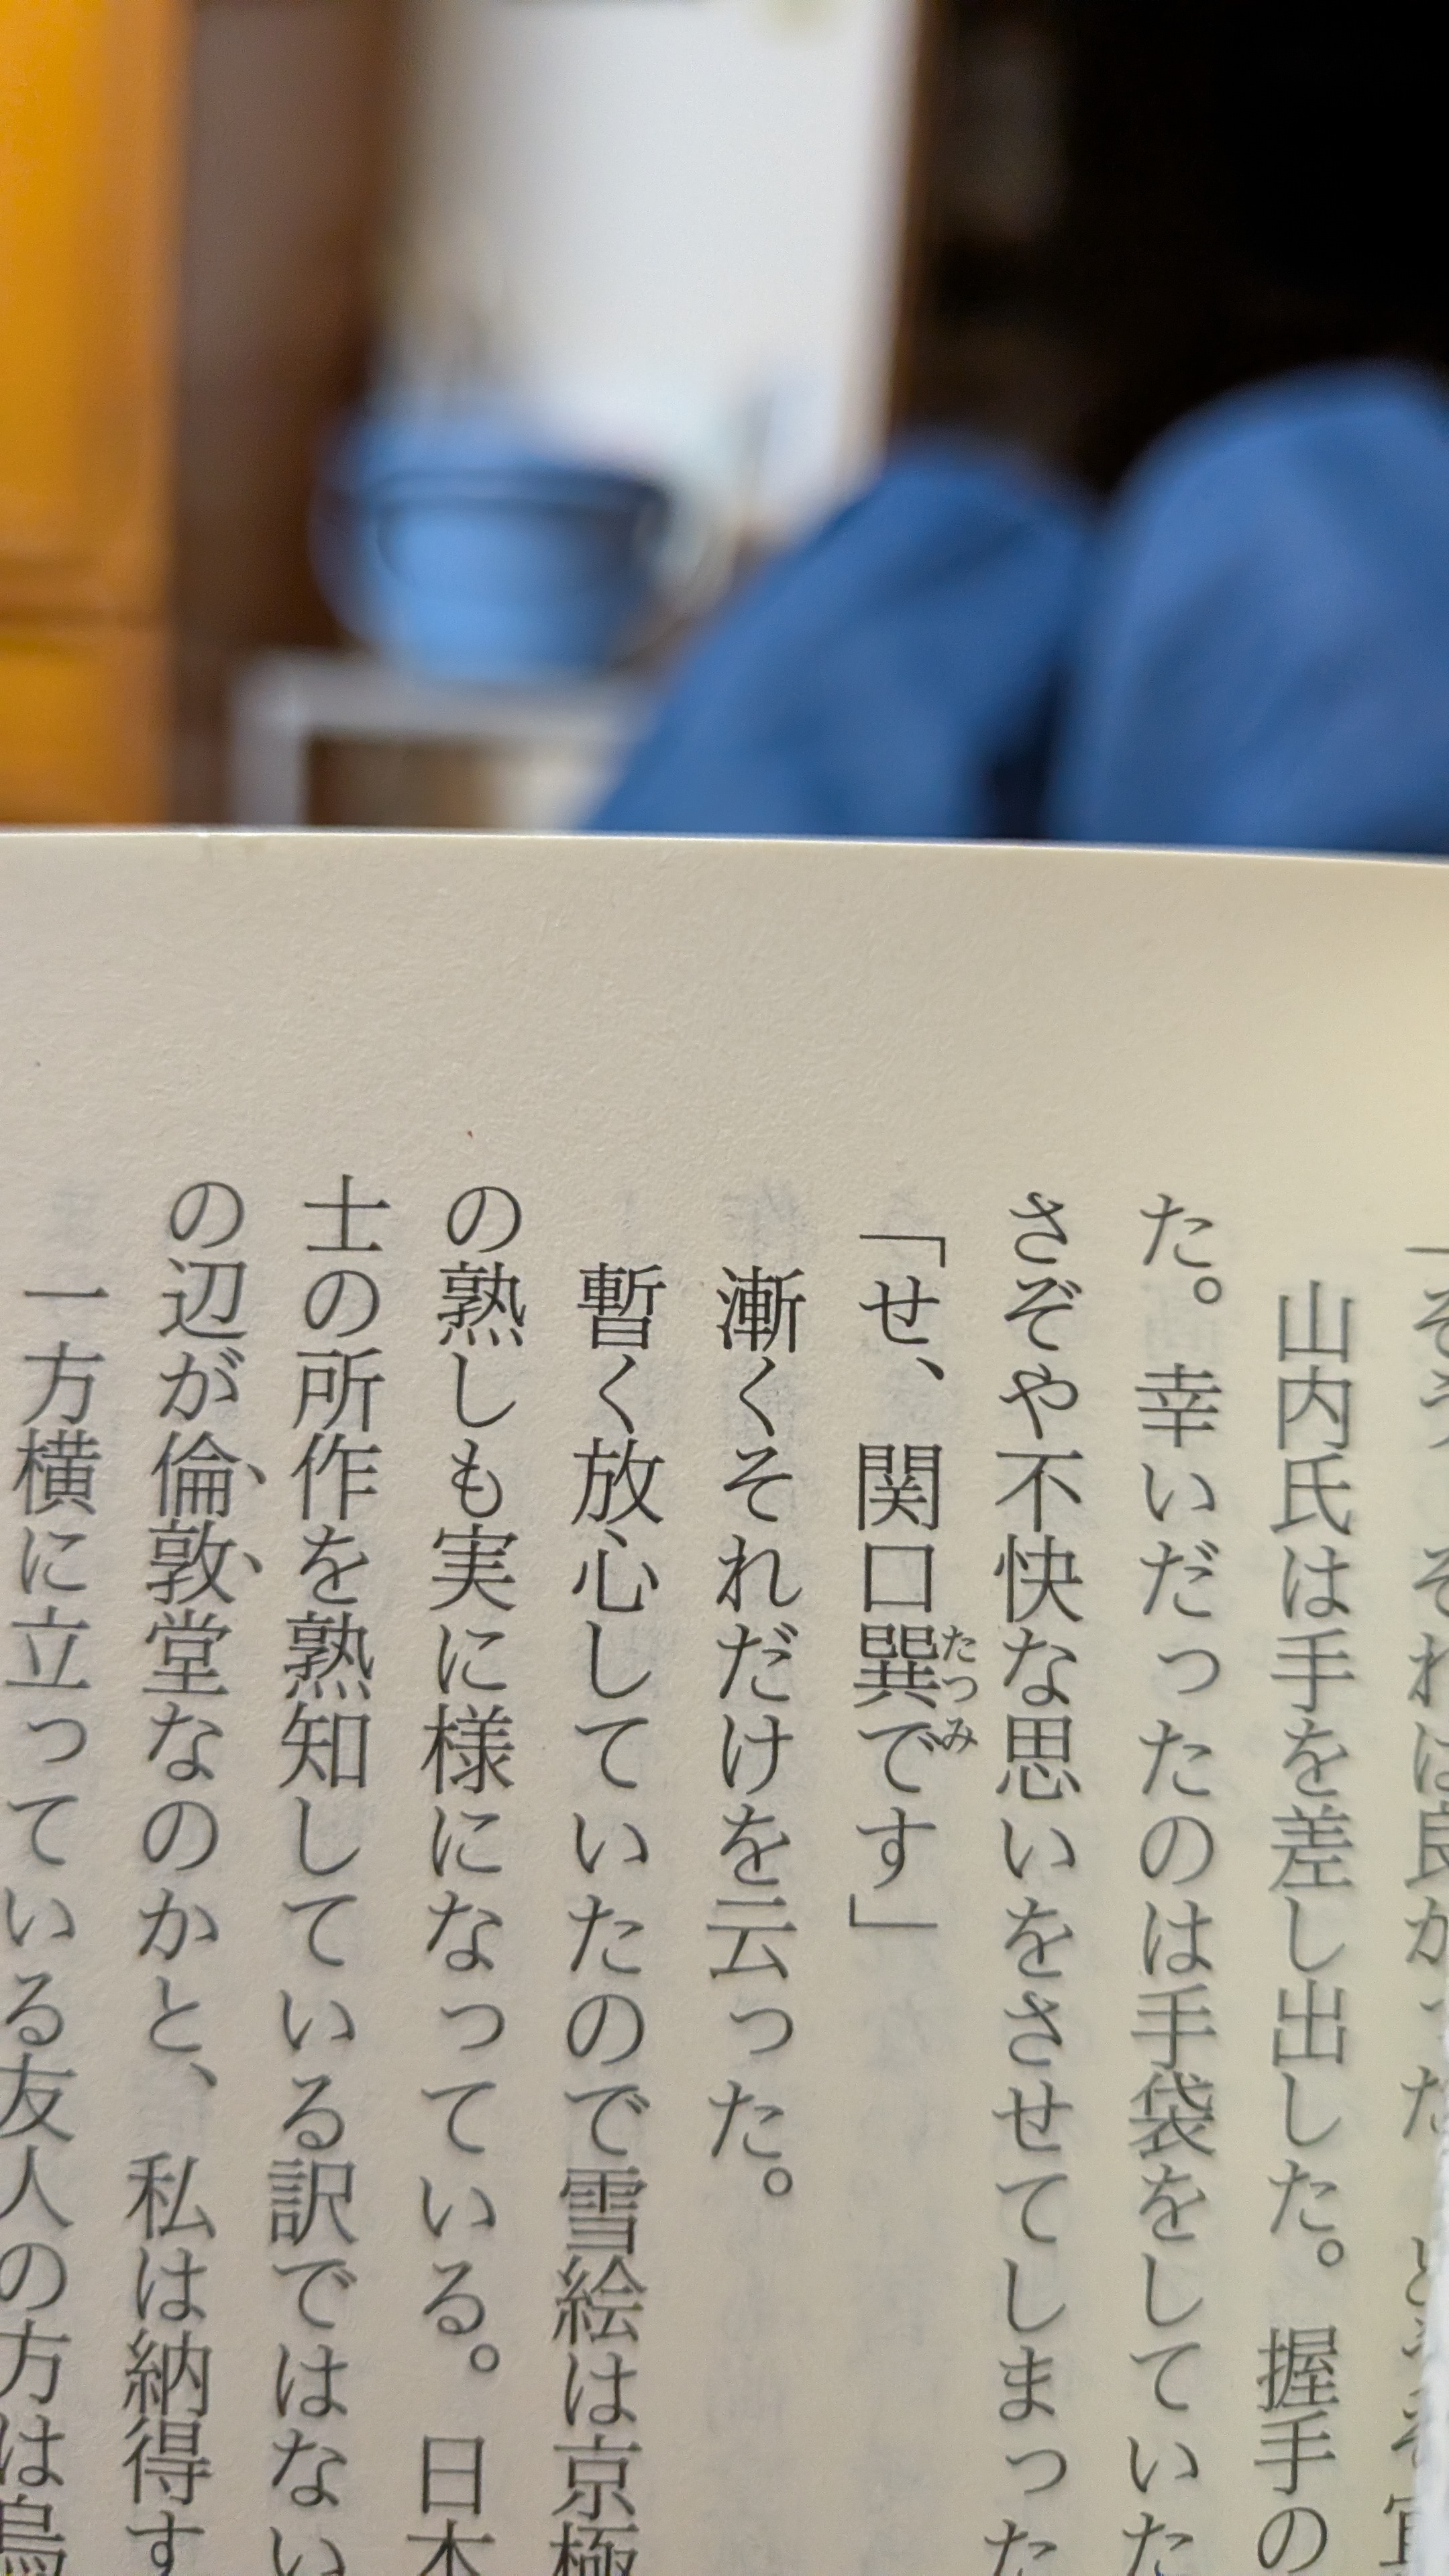 「そう、それは良かった。どうぞ宜
山内氏は手を差し出した。握手の
た。幸いだったのは手袋をしていた
さぞや不快な思いをさせてしまった
「せ、関口巽です」
たつみ
漸くそれだけを云った。
暫く放心していたので雪絵は京極
の熟しも実に様になっている。日本
士の所作を熟知している訳ではない
の辺が倫敦堂なのかと、私は納得す
一方横に立っている友人の方は烏